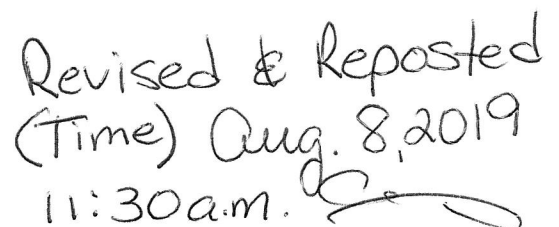 Revised & Reposted
(Time) Aug. 8, 2019
11:30a.m.